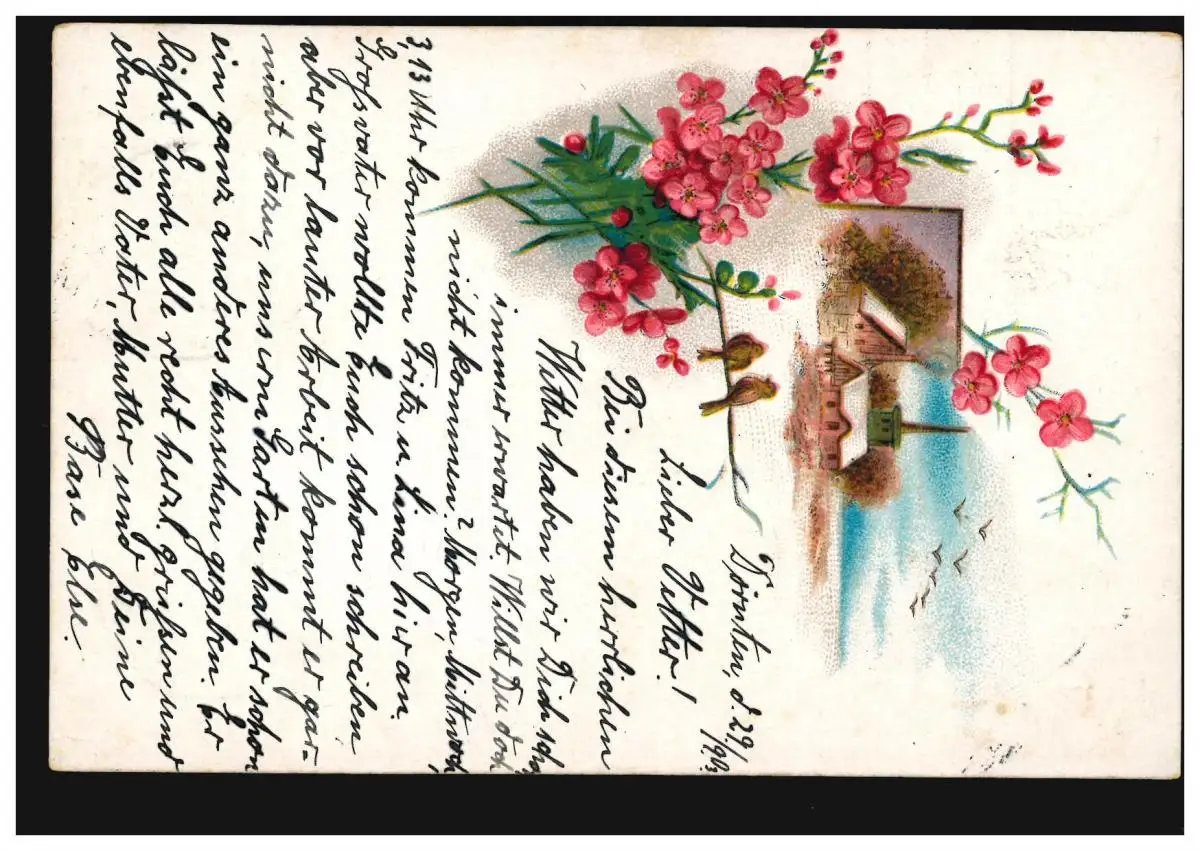 Dörnten, d. 29/9.03
Lieber Vetter!
Bei diesem herrlichen
Wetter haben wir Dich schon
immer erwartet. Willst Du doch
nicht kommen? Morgen, Mittwoch,
3,13 Uhr kommen Fritz u. Lina hier an.
Großvater wollte Euch schon schreiben
aber vor lauter Arbeit kommt er gar-
nicht dazu, unserm Garten hat er schon
ein ganz anderes Aussehen gegeben. Er
läßt Euch alle recht herzl. grüßen und
ebenfalls Vater, Mutter und Deine
Base Else.